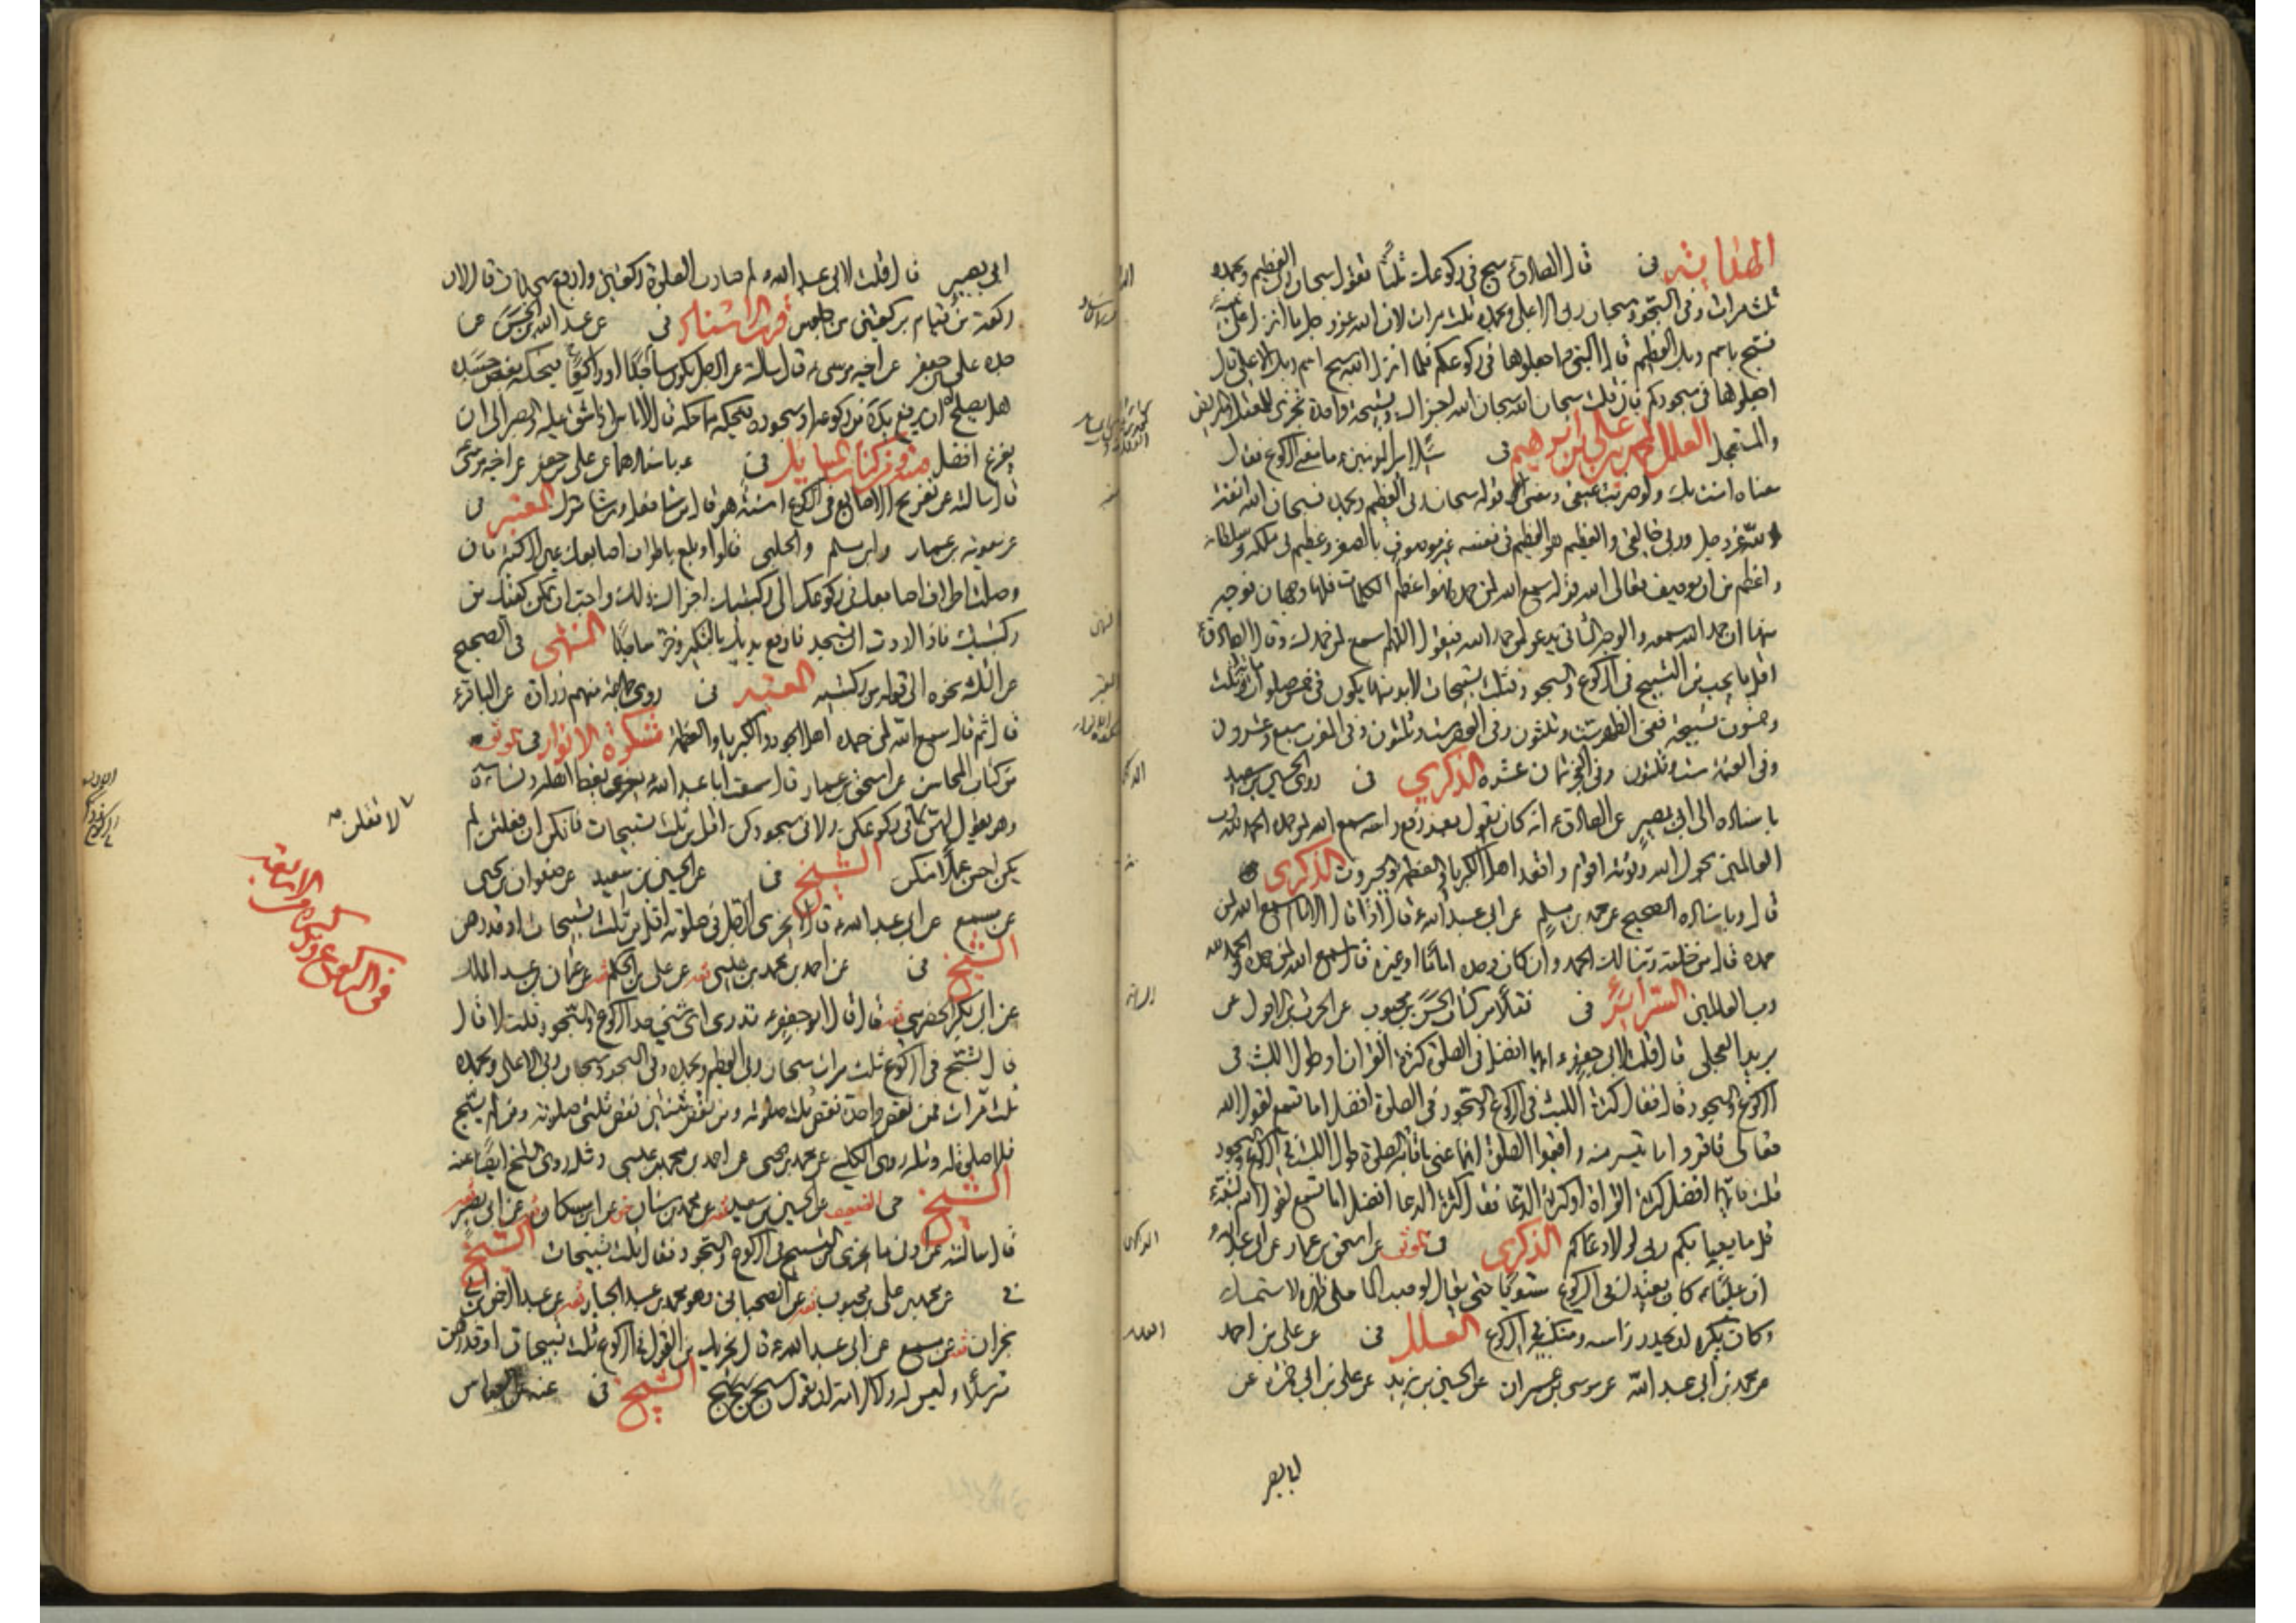 الهداية فى قال الصادق ع سبح فى ركوعك ثلثا تقول سبحان ربى العظيم وبحمده
ثلث مرات وفى السجود سبحان ربى الاعلى وبحمده ثلث مرات لان الله عز وجل لما انزل على نبيه
فسبح باسم ربك العظيم قال النبى ص اجعلوها فى ركوعكم فلما انزل الله سبح اسم ربك الاعلى قال
اجعلوها فى سجودكم فان قلت سبحان الله سبحان الله سبحان الله اجزاك وتسبيحة واحدة تجزى للمعتل والمريض
والمستعجل العلل لمحمد بن على بن ابرهيم فى سئل امير المؤمنين ع ما معنى الركوع فقال
معناه امنت بك ولو ضربت عنقى ومعنى قوله سبحان ربى العظيم وبحمده فسبحان الله انفة
لله عز وجل وربى خالقى والعظيم هو العظيم فى نفسه غير موصوف بالصغر وعظيم فى ملكه وسلطانه
واعظم من ان يوصف تعالى الله قوله سمع الله لمن حمده فهو اعظم الكلمات فلها وجهان فوجه
منها ان حمد الله سمعه والوجه الثانى يدعو لمن حمد الله فيقول اللهم اسمع لمن حمدك وقال الصادق ع
اقل ما يجب من التسبيح فى الركوع والسجود فثلث تسبيحات لابد منها يكون فى خمس صلوات مائة وثلث
وخمسون تسبيحة ففى الظهر ست وثلثون وفى العصر ست وثلثون وفى المغرب سبع وعشرون
وفى العتمة ست وثلثون وفى الفجر ثمان عشرة الذكرى فى روى الحسين بن سعيد
باسناده الى ابى بصير عن الصادق ع انه كان يقول بعد رفع راسه سمع الله لمن حمده الحمد لله رب
العالمين بحول الله وقوته اقوم واقعد اهل الكبرياء والعظمة والجبروت الذكرى
قال وباسناده الصحيح عن محمد بن مسلم عن ابى عبد الله ع قال اذا قال الامام سمع الله لمن
حمده قال من خلفه ربنا لك الحمد وان كان وحده اماما او غيره قال سمع الله لمن حمده الحمد لله
رب العالمين السرائر فى نقلا من كتاب الحسن بن محبوب عن الحرث بن الاحول عن
بريد العجلى قال قلت لابى جعفر ع ايهما افضل فى الصلوة كثرة القران او طول اللبث فى
الركوع والسجود قال فقال كثرة اللبث فى الركوع والسجود فى الصلوة افضل اما تسمع لقول الله
تعالى فاقرؤا ما تيسر منه واقيموا الصلوة انما عنى باقامة الصلوة طول اللبث فى الركوع والسجود
قلت فايهما افضل كثرة القراءة او كثرة الدعا فقال كثرة الدعا افضل اما تسمع لقول الله لنبيه ع
قل ما يعبأ بكم ربى لولا دعاؤكم الذكرى فى الموثق عن اسحق بن عمار عن ابى عبد الله ع
ان عليا ع كان يعتدل فى الركوع مستويا حتى يقال لو صب الماء على ظهره لاستمسك
وكان يكره ان يحدر راسه ومنكبيه فى الركوع العلل فى عن على بن احمد
عن محمد بن ابى عبد الله عن موسى بن عمران عن الحسين بن يزيد عن على بن ابى حمزة عن
ابى بصير
ابى بصير قال قلت لابى عبد الله ع لم صارت الصلوة ركعتين واربع سجدات قال لان
ركعة من قيام بركعتين من جلوس قرب الاسناد فى عن عبد الله بن الحسن عن
جده على بن جعفر عن اخيه موسى ع قال سالته عن الرجل يكون ساجدا او راكعا فيحكه بعض جسده
هل يصلح له ان يرفع يده من ركوعه او سجوده فيحكه مما حكه قال لا باس اذا شق عليه والصبر الى ان
يفرغ افضل فى عنه باسنادهما عن على بن جعفر عن اخيه موسى
قال سالته عن تفريج الاصابع فى الركوع اسنة هو قال من شاء فعل ومن شاء ترك المعتبر فى
عن معوية بن عمار وابن مسلم والحلبى قالوا وبلع باطراف اصابعك عين الركبة فان
وصلت اطراف اصابعك فى ركوعك الى ركبتيك اجزاك ذلك واحب ان تمكن كفيك من
ركبتيك فاذا اردت ان تسجد فارفع يديك بالتكبير وخر ساجدا المنتهى فى الصحيح
عن الثلثة نحوه الى قوله من ركبتيه المعتبر فى روى جماعة منهم زرارة عن الباقر ع
قال ثم قال سمع الله لمن حمده اهل الجود والكبرياء والعظمة مشكوة الانوار فى الموثق
من كتاب المحاسن عن اسحق بن عمار قال سمعت ابا عبد الله ع يعظ اهله ونساءه
وهو يقول لهن لا تقلن فى ركوعكن ولا فى سجودكن اقل من ثلث تسبيحات فانكن ان فعلتن لم
يكن احسن عملا منكن الشيخ فى عن الحسين بن سعيد عن صفوان بن يحيى
عن مسمع عن ابى عبد الله ع قال لا يجزى الرجل فى صلوته اقل من ثلث تسبيحات او قدرهن
الشيخ فى عن احمد بن محمد بن عيسى ثقه عن على بن الحكم ثقه عن عثمان بن عبد الملك
عن ابى بكر الحضرمى ثقه قال قال ابو جعفر ع تدرى اى شئ حد الركوع والسجود قلت لا قال
قال تسبح فى الركوع ثلث مرات سبحان ربى العظيم وبحمده وفى السجود سبحان ربى الاعلى وبحمده
ثلث مرات فمن نقص واحدة نقص ثلث صلوته ومن نقص ثنتين نقص ثلثى صلوته ومن لم يسبح
فلا صلوة له ومثله روى الكلينى عن محمد بن يحيى عن احمد بن محمد بن عيسى ومثله روى الشيخ ايضا عنه
الشيخ فى الضعيف عن الحسين بن سعيد ثقه عن محمد بن سنان عن ابن مسكان ثقه عن ابى بصير
قال سالته عن ادنى ما يجزى من التسبيح فى الركوع والسجود فقال ثلث تسبيحات الشيخ
فى عن محمد بن على بن محبوب ثقه عن الصهبانى وهو محمد بن عبد الجبار ثقه عن عبد الرحمن بن ابى
نجران ثقه عن مسمع عن ابى عبد الله ع قال يجزيك من القول فى الركوع ثلث تسبيحات او قدرهن
مترسلا وليس له ولا كرامة ان يقول سبح سبح سبح الشيخ فى عنه عن العباس
لا تقلن